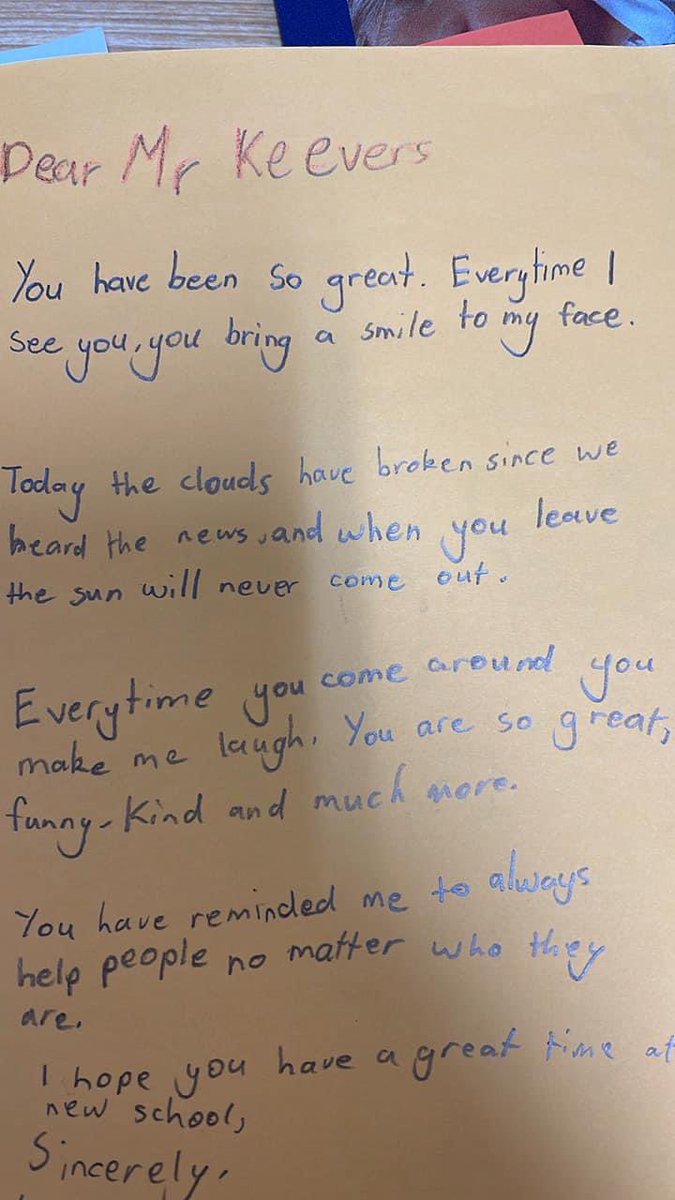 Dear Mr Keevers
You have been so great. Everytime I
see you, you bring a smile to my face.
Today the clouds have broken since we
heard the news, and when you leave
the sun will never come out.
Everytime you come around you
make me laugh. You are so great,
funny, kind and much more.
You have reminded me to always
help people no matter who they
are.
I hope you have a great time at
new school,
Sincerely,